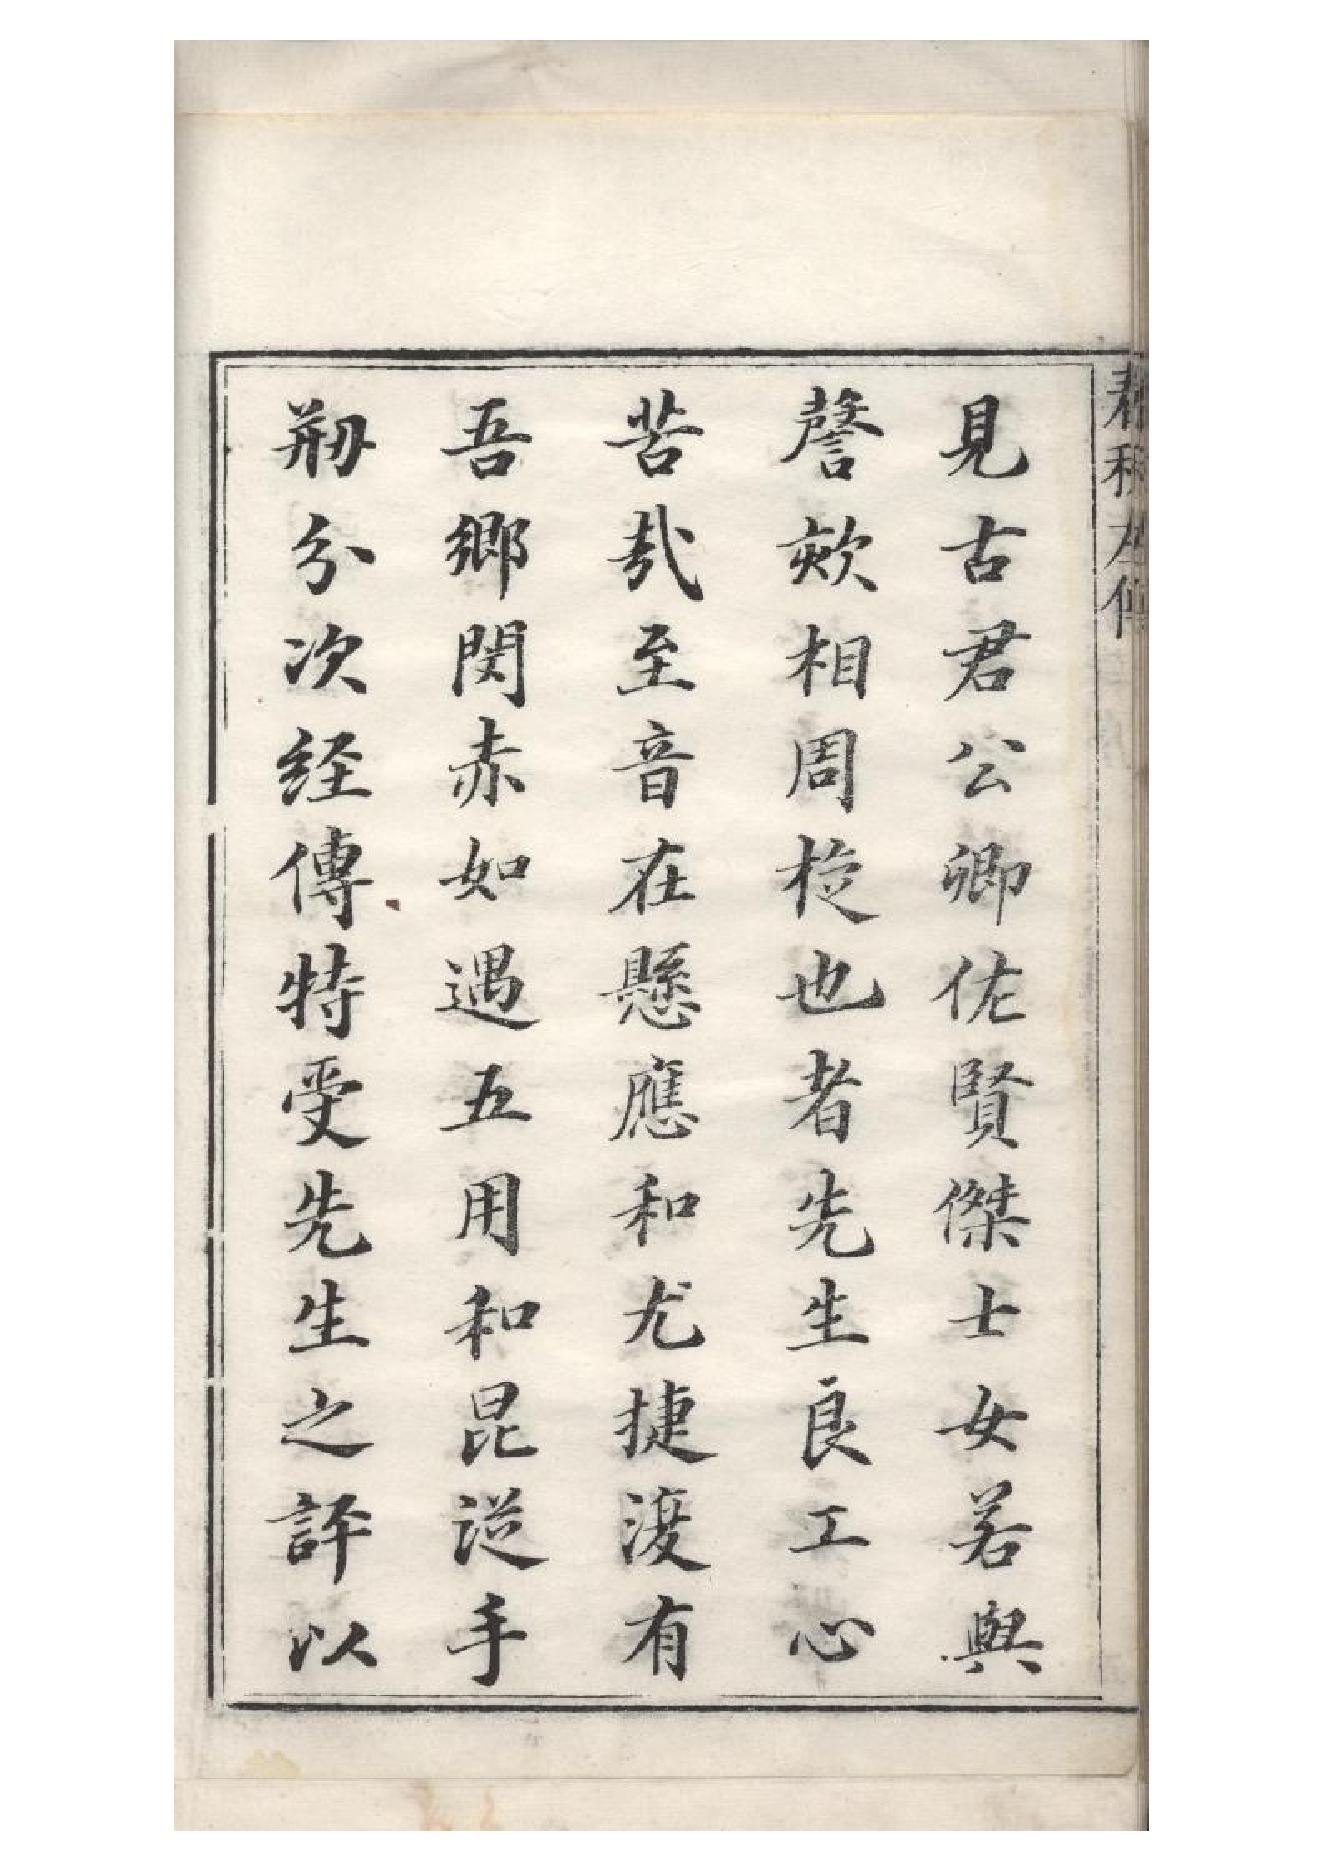 春秋左傳
見古君公卿佐賢傑士女若與
謦欬相周旋也者先生良工心
苦哉至音在懸應和尤捷復有
吾鄉閔赤如遇五用和昆從手
剏分次經傳特受先生之評以